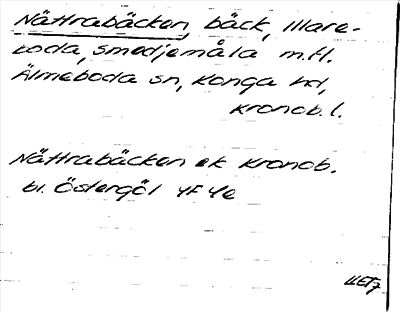 Nättrabäcken, bäck, Illare-
boda, Smedjemåla m.fl.
Älmeboda sn, Konga hd,
Kronob. l.
Nättrabäcken ek Kronob.
bl. Östergöl 4F4e